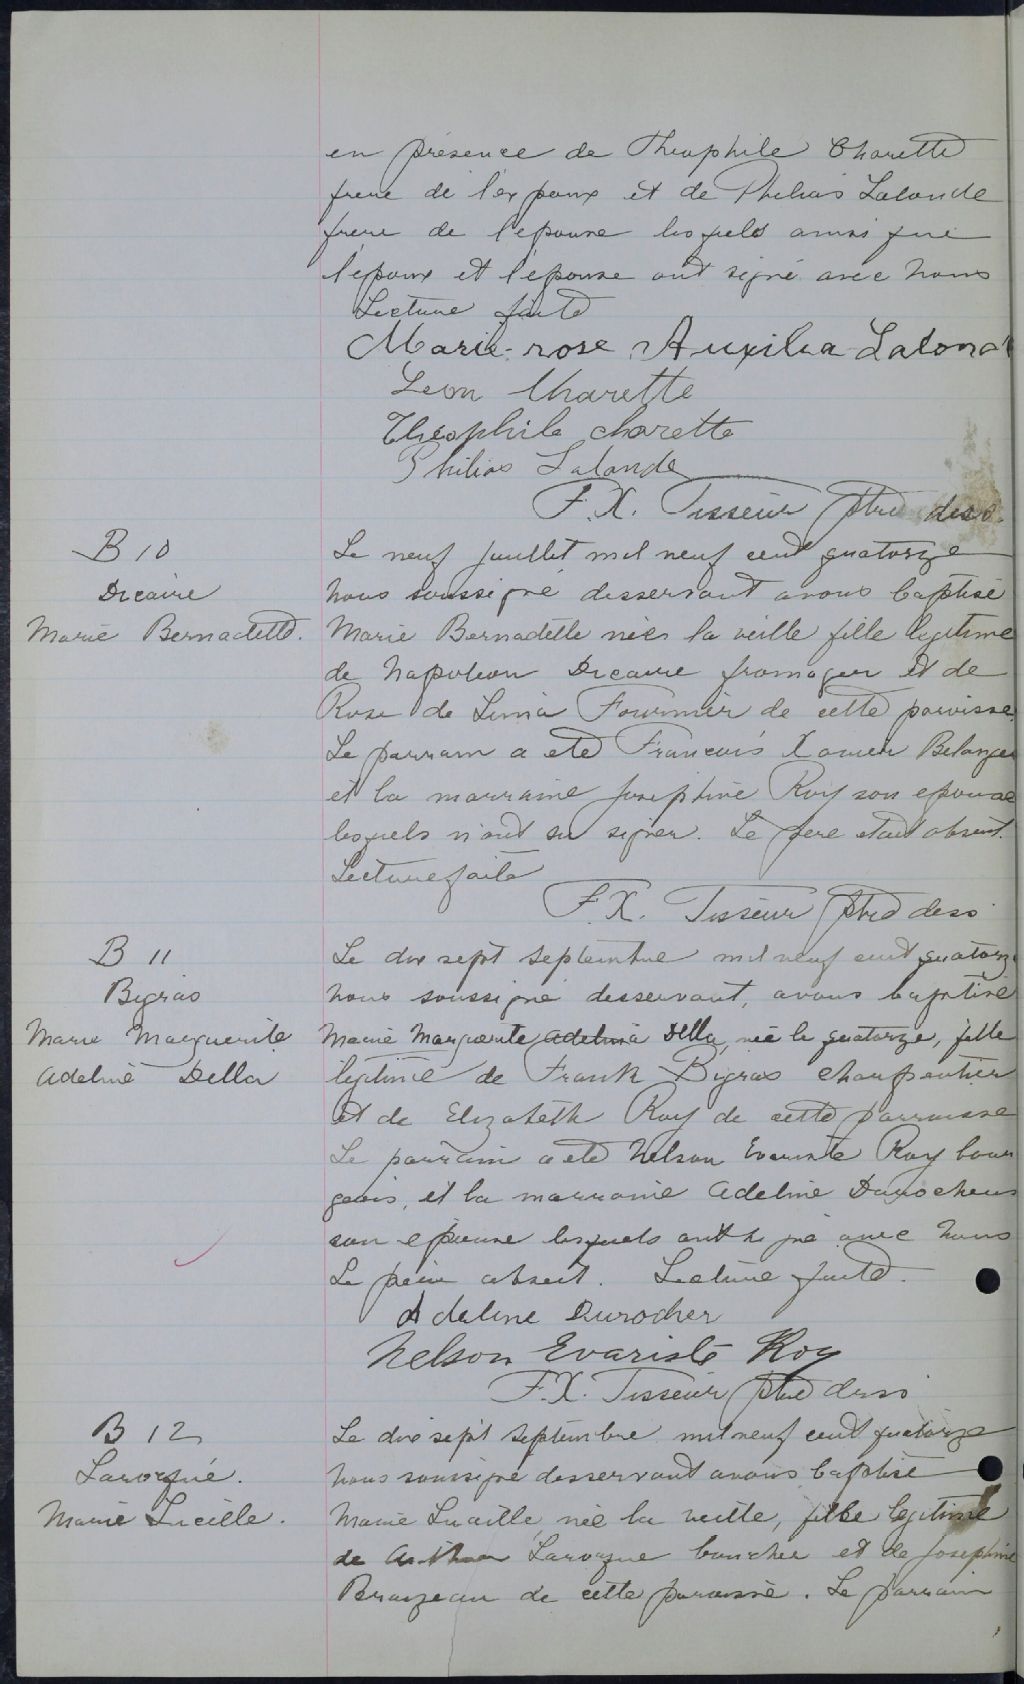 en présence de Theophile Charette
frere de l'époux et de Philias Lalonde
frere de l'epouse lesquels ainsi que
l'époux et l'épouse ont signé avec nous
Lecture faite
Marie-rose Auxilia Lalonde
Leon Charette
Théophile charette
Philias Lalonde
F. X. Tisseur ptre dess.
B 10
Decaire
Marie Bernadette.
Le neuf juillet mil neuf cent quatorze
nous soussigné desservant avons baptisé
Marie Bernadette née la veille fille legitime
de Napoleon Decaire fromager et de
Rose de Lima Fournier de cette paroisse.
Le parrain a ete Francois Xavier Belanger
et la marraine Josephine Roy son epouse
lesquels n'ont su signer. Le pere etait absent.
Lecture faite
F. X. Tisseur ptre dess
B 11
Bigras
Marie Marguerite
Adeline Della
Le dix sept septembre mil neuf cent quatorze
nous soussigné desservant, avons baptisé
Marie Marguerite Adelina Della, née le quatorze, fille
legitime de Frank Bigras charpentier
et de Elizabeth Roy de cette parroisse
Le parrain a ete Nelson Evariste Roy bour
geois, et la marraine Adeline Durochers
son epouse lesquels ont signé avec nous
Le père absent. Lecture faite.
Adeline Durocher
Nelson Evariste Roy
F. X. Tisseur ptre dess
B 12
Larocque.
Marie Lucille.
Le dix sept septembre mil neuf cent quatorze
nous soussigné desservant avons baptisé
Marie Lucille, née la veille, fille legitime
de Arthur Larocque boucher et de Josephine
Brazeau de cette paroisse. Le parrain